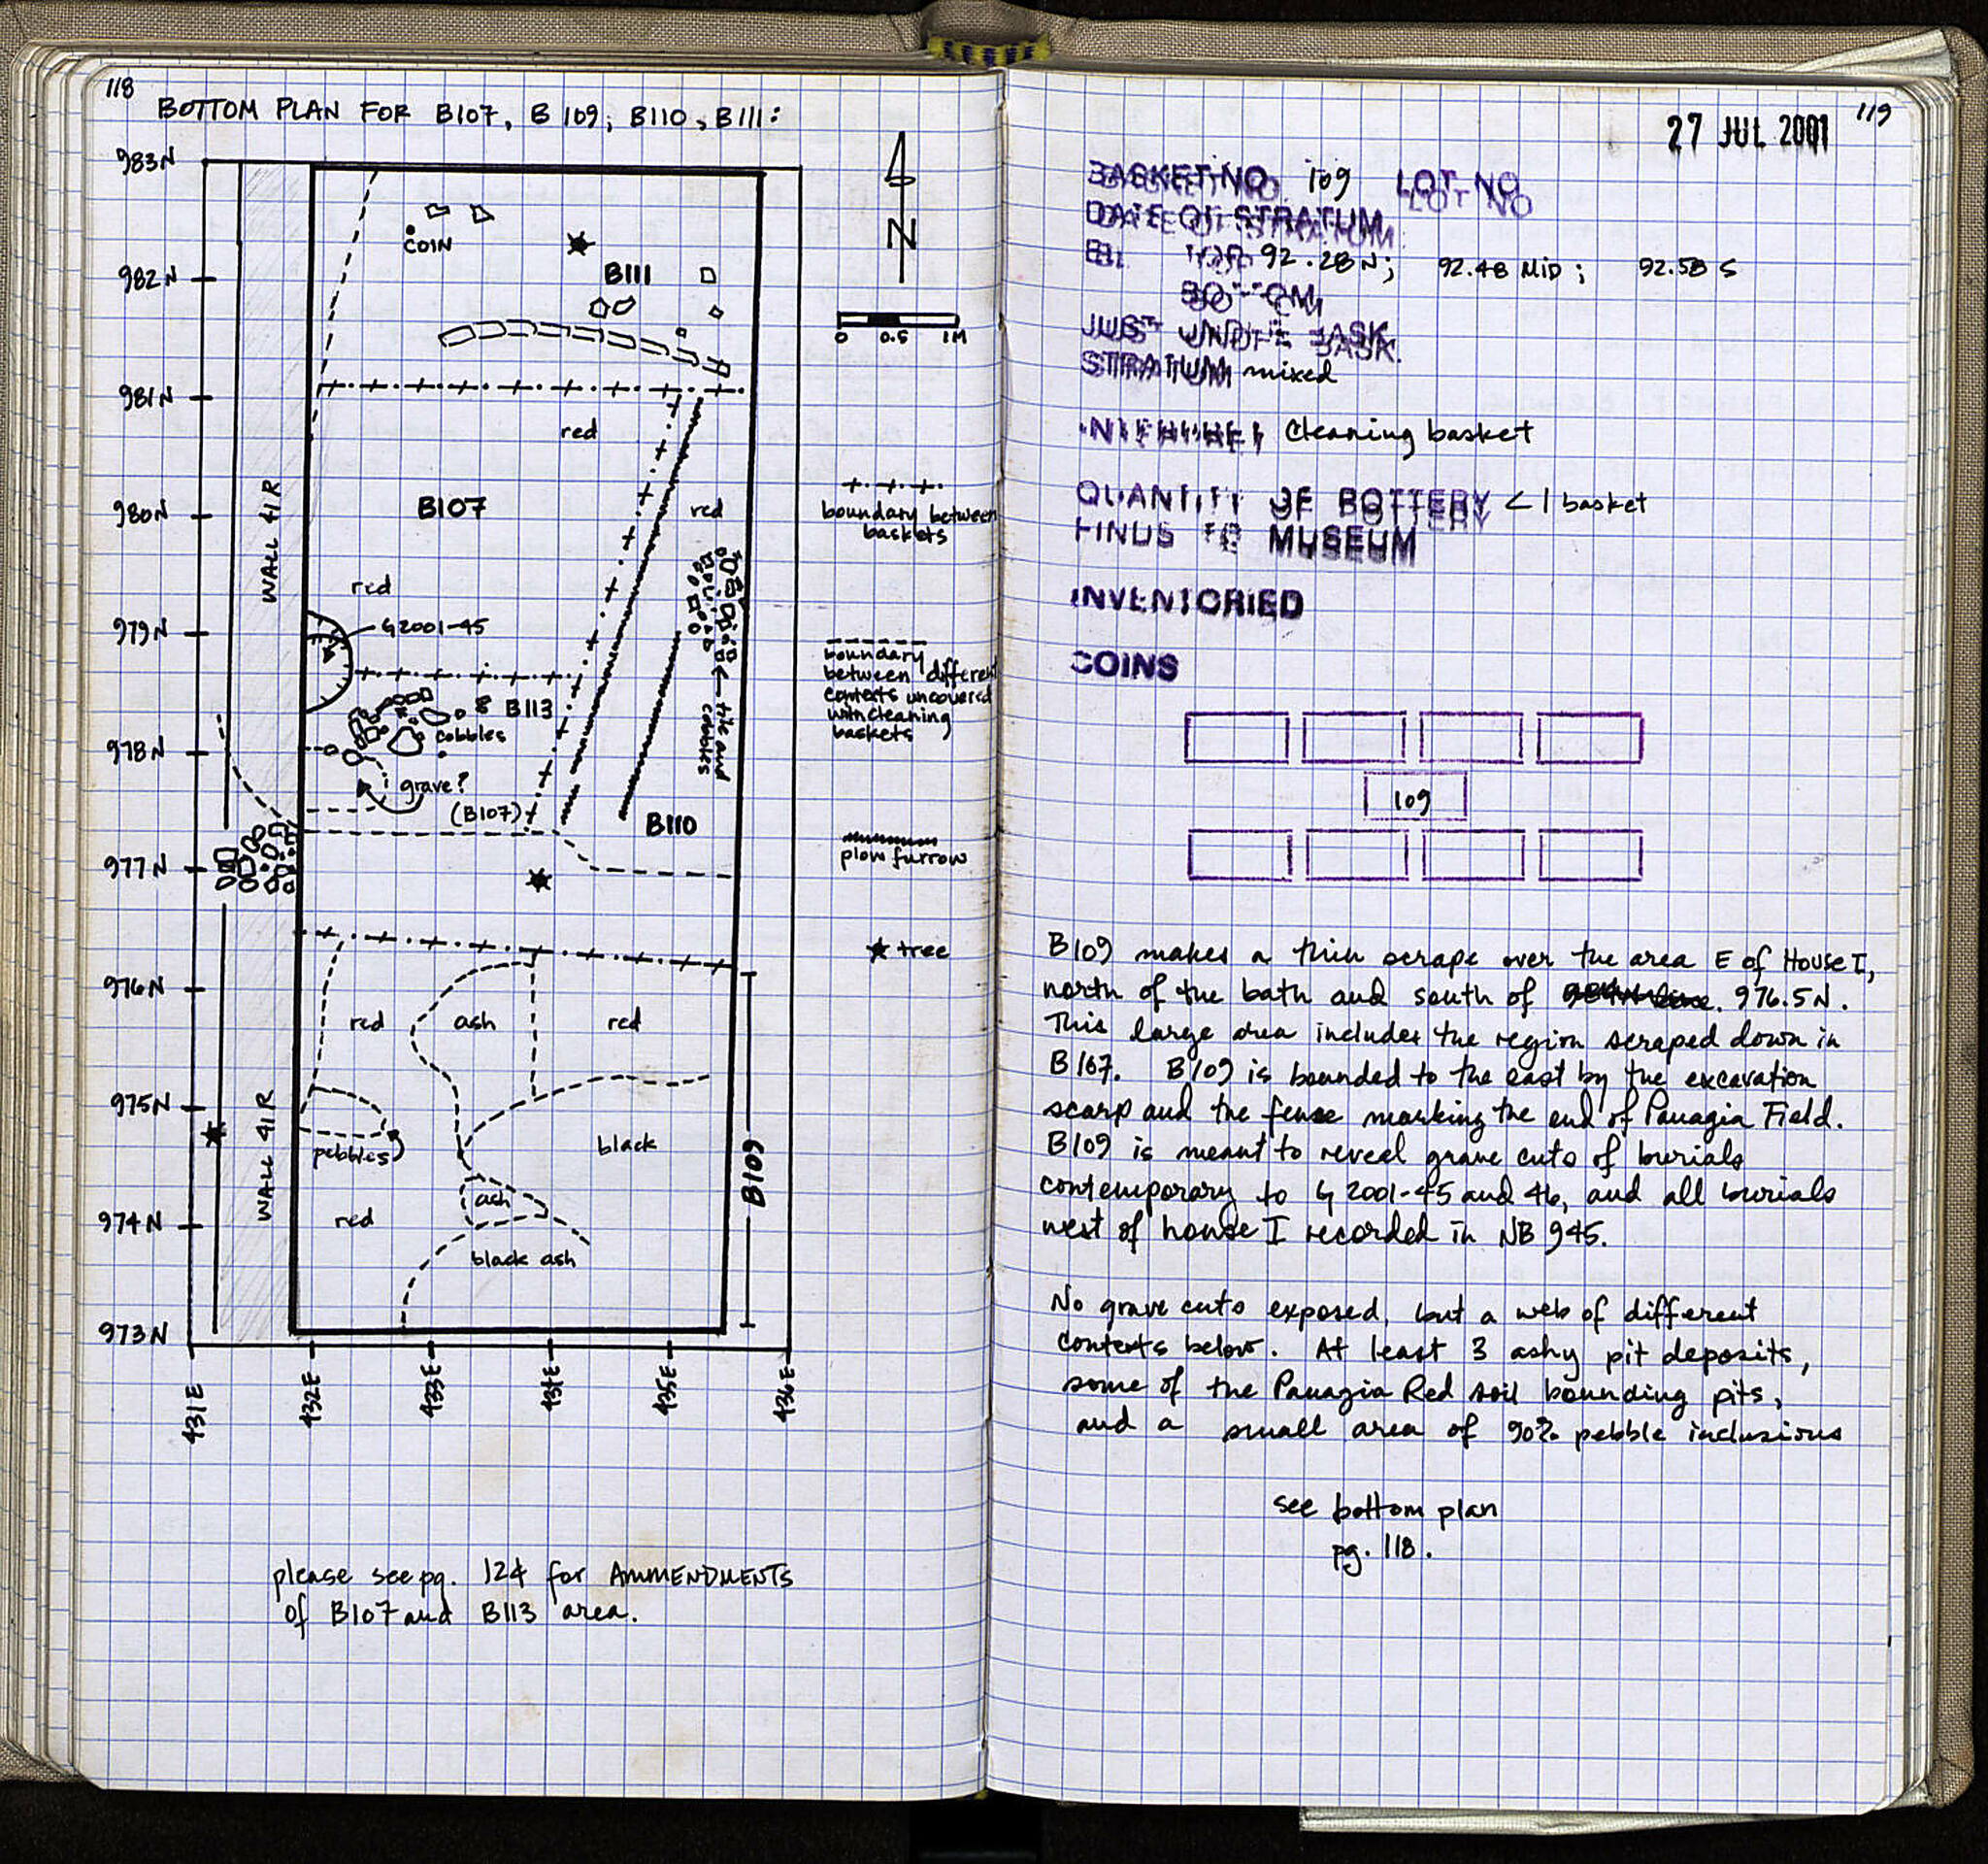 118
BOTTOM PLAN FOR B107, B109, B110, B111:
983N
982N
981N
980N
979N
978N
977N
976N
975N
974N
973N
431E
432E
433E
434E
435E
436E
WALL 41R
WALL 41R
COIN
B111
red
B107
red
red
G2001-45
B113
cobbles
grave?
(B107)
tile and
cobbles
B110
red
ash
red
pebbles
black
ash
red
black ash
B109
N
0 0.5 1M
boundary between
baskets
boundary
between different
contexts uncovered
with cleaning
baskets
plow furrow
tree
please see pg. 124 for AMMENDMENTS
of B107 and B113 area.
119
27 JUL 2001
BASKET NO 109 LOT NO
DATE OF STRATUM
EL. TOP 92.28 N; 92.48 Mid; 92.58 S
BOTTOM
JUST UNDER BASK.
STRATUM mixed
Cleaning basket
QUANTITY OF POTTERY < 1 basket
FINDS TO MUSEUM
INVENTORIED
COINS
109
B109 makes a thin scrape over the area E of House I,
north of the bath and south of 976.5N.
This large area includes the region scraped down in
B107. B109 is bounded to the east by the excavation
scarp and the fense marking the end of Panagia Field.
B109 is meant to reveal grave cuts of burials
contemporary to G 2001-45 and 46, and all burials
west of house I recorded in NB 945.
No grave cuts exposed, but a web of different
contexts below. At least 3 ashy pit deposits,
some of the Panagia Red soil bounding pits,
and a small area of 90% pebble inclusions
see bottom plan
pg. 118.